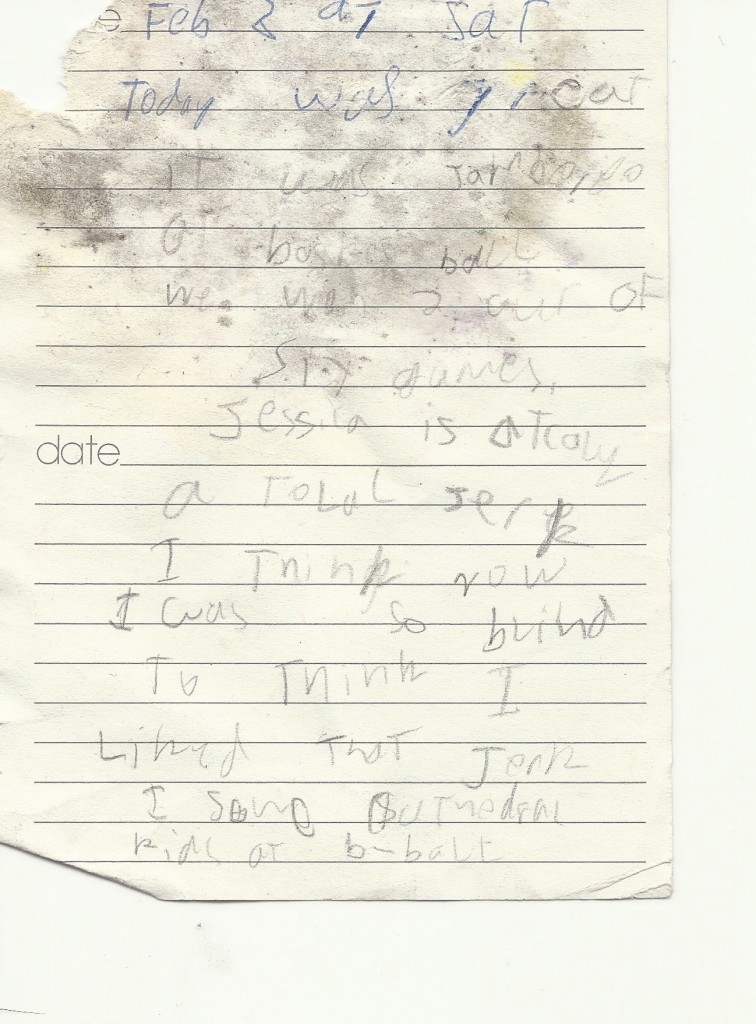 e Feb 2 97 Sat
Today was great
IT was Jamboree
at basket ball
we won 2 out of
Six games.
Jessica is
date
a ToTal Jerk
I Think now
I was so blind
To Think I
Liked ThaT Jerk
I Cathedral
kids aT b-ball